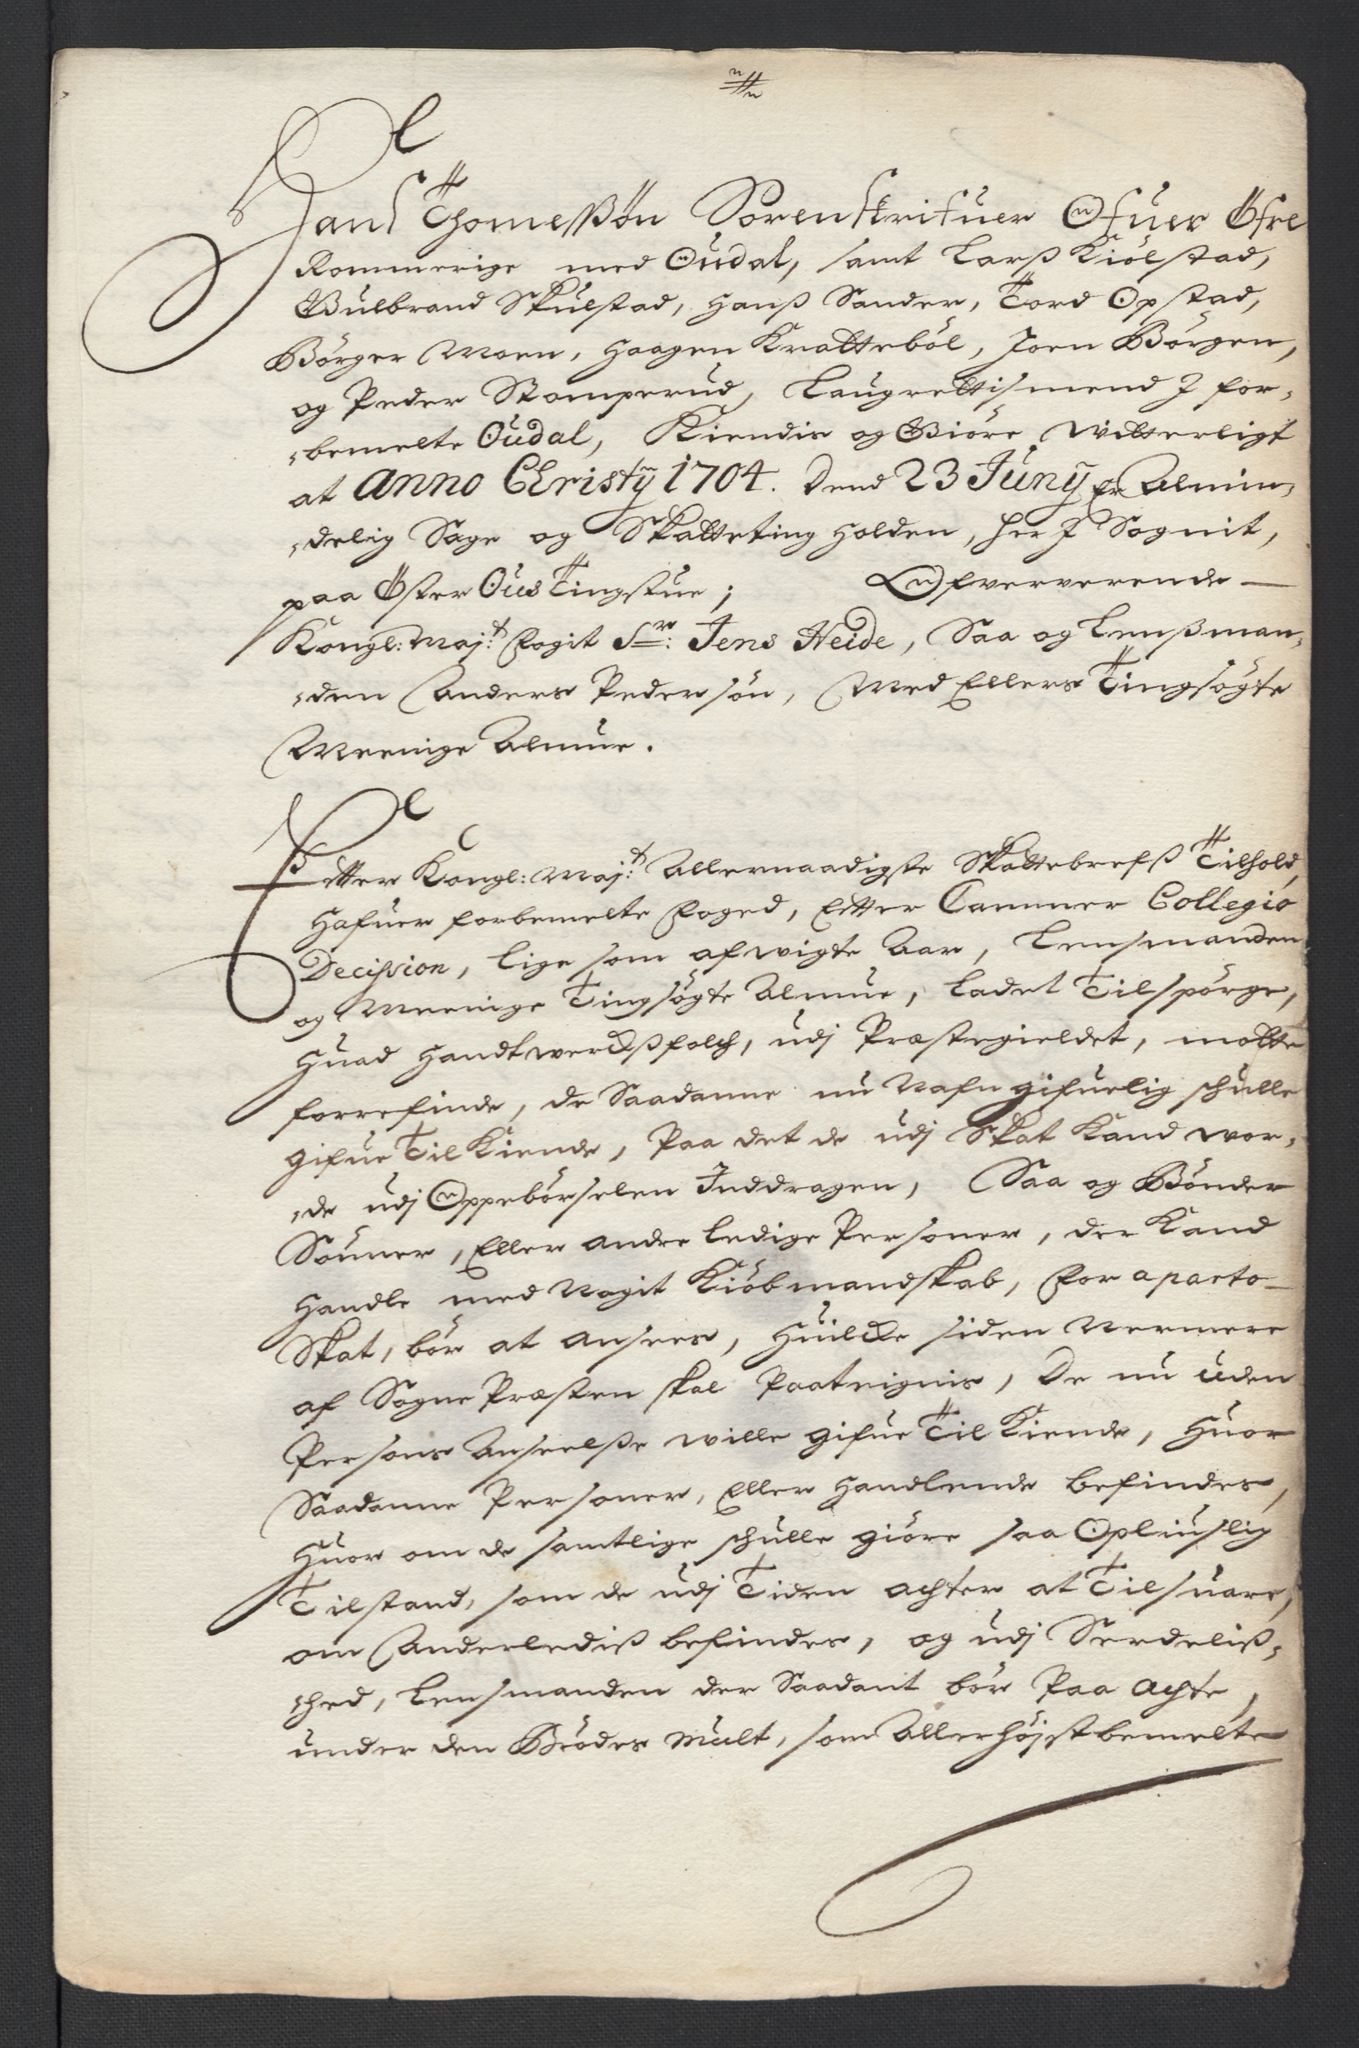 Hans Thomessøn Sorenskrifuer Ofuer Øfre
Rommerige med Oudal, samt Larsz Kiølstad,
Gulbrand Skulstad, Hansz Sander, Tord Opstad,
Børger Moen, Haagen Kratteböl, Joen Börgen,
og Peder Stomperud, Laugrettismend J for-
-bemelte Oudal, Kiendis og Giöre Vitterligt
at Anno Christÿ 1704. Dend 23 Junÿ er Almin-
-delig Sage og Skatteting holden, her J Sognit,
paa Öster Ous Tingstue; Ofververende
Kongl: Maj:t Fogit Sr: Jens Heide, Saa og Lenszman-
-den Anders Pedersøn, Med Ellers Tingsøgte
Meenige Almue.
Efter Kongl: Maj:t Allernaadigste Skattebrefsz Tilhold,
Hafuer forbemelte Foged, Efter Cammer Collegio
Decission, lige som afwigte Aar, Lensmanden
og Meenige Tingsøgte Almue, ladet Tilspørge,
Huad Handtwercksfolch, udj Præstegieldet, motte
forrefinde, de Saadanne nu Nafngifuelig schulle
gifue Til Kiende, Paa det de udj Skat Kand wor-
-de udj Oppebörselen Inddragen, Saa og Bönder
Sönner, Eller andre ledige Personer, der Kand
Handle med Nogit Kiöbmandskab, for aparte
Skat, bör at ansees, Huilcke siden Nermere
af Sogne Præsten skal Paateignis, De nu uden
Persons Anseelsze wille gifue Til Kiende, Huor
Saadanne Personer, Eller Handlende befindes,
Huor om de samtlige schulle giöre saa Opliuslig
Tilstand, som de udj Tiden achter at Tilsuare,
om Anderledisz befindes, og udj Serdelisz-
-hed, Lensmanden der Saadant bör Paa achte,
under den Bröder Mult, som Allerhöjstbemelte